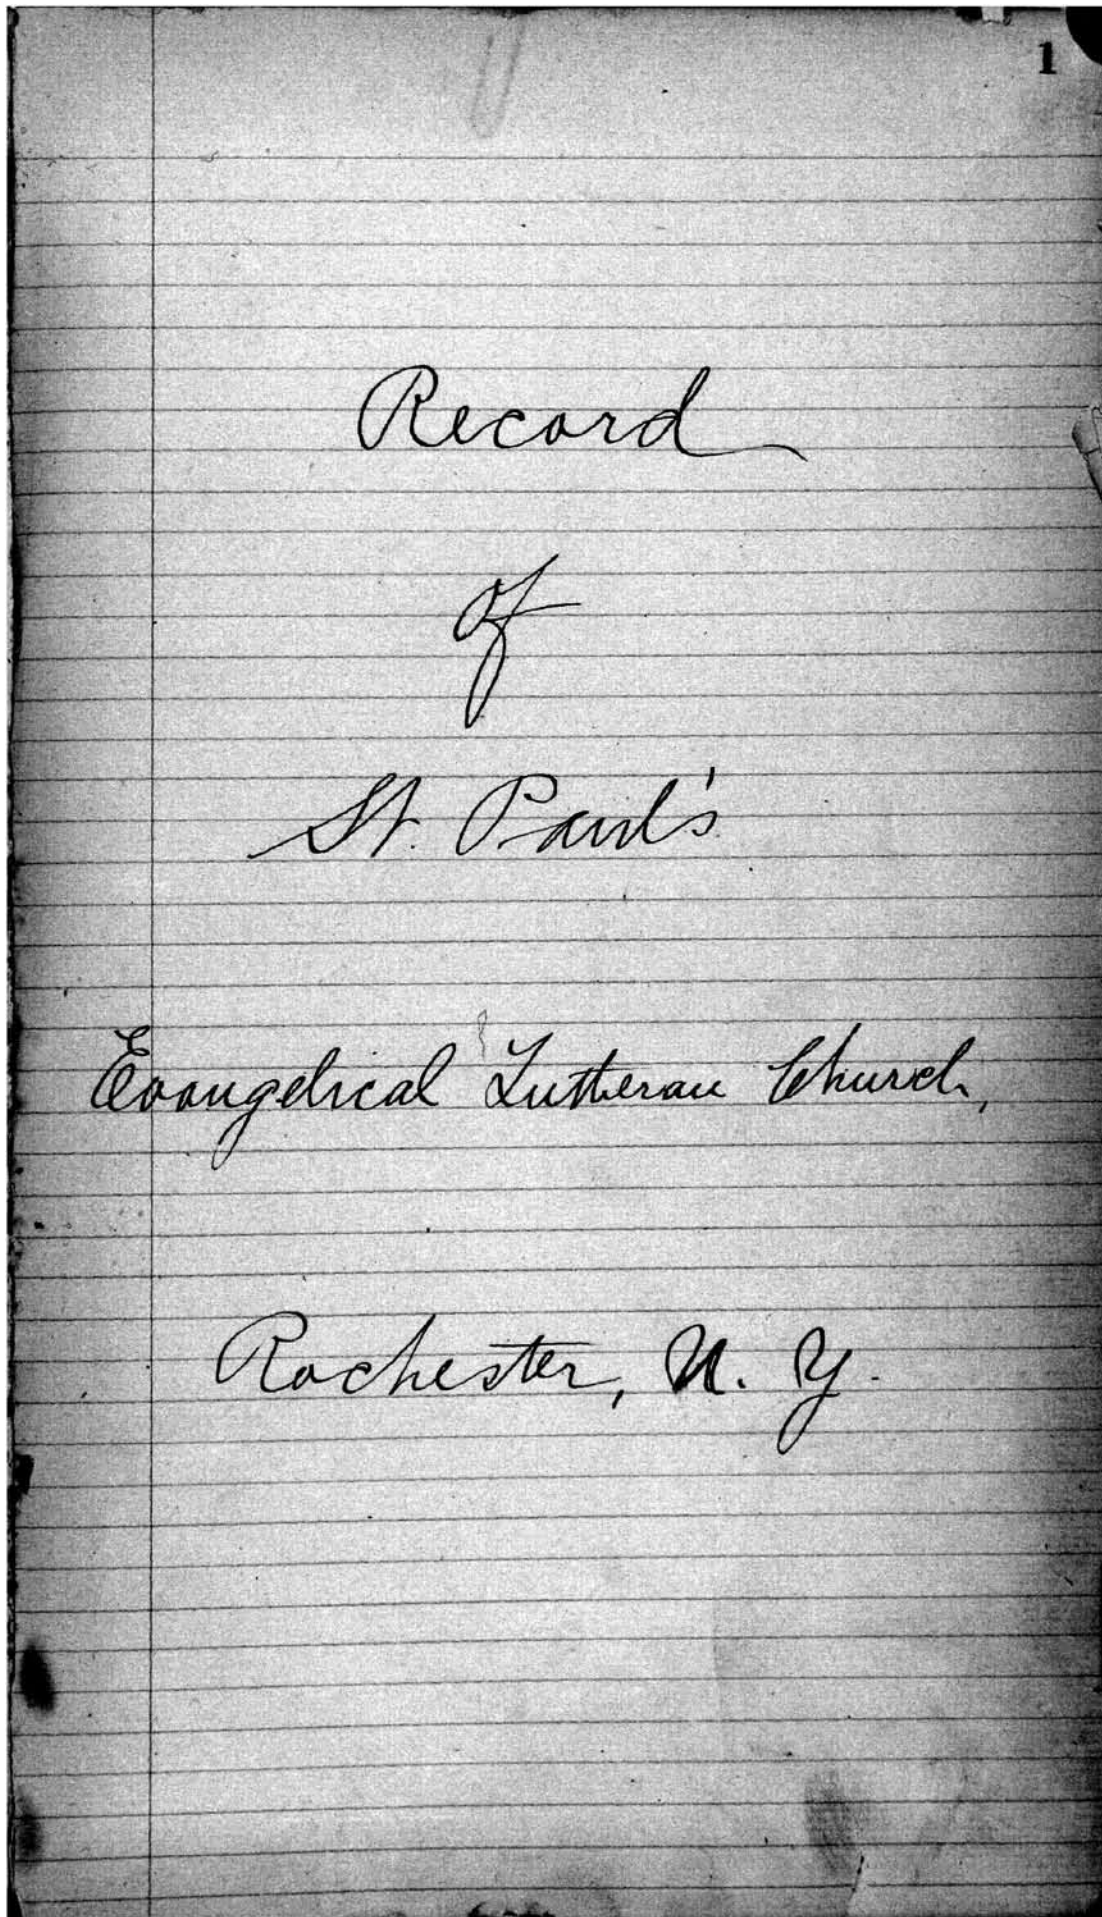 1
Record
of
St. Paul's
Evangelical Lutheran Church,
Rochester, N. Y.